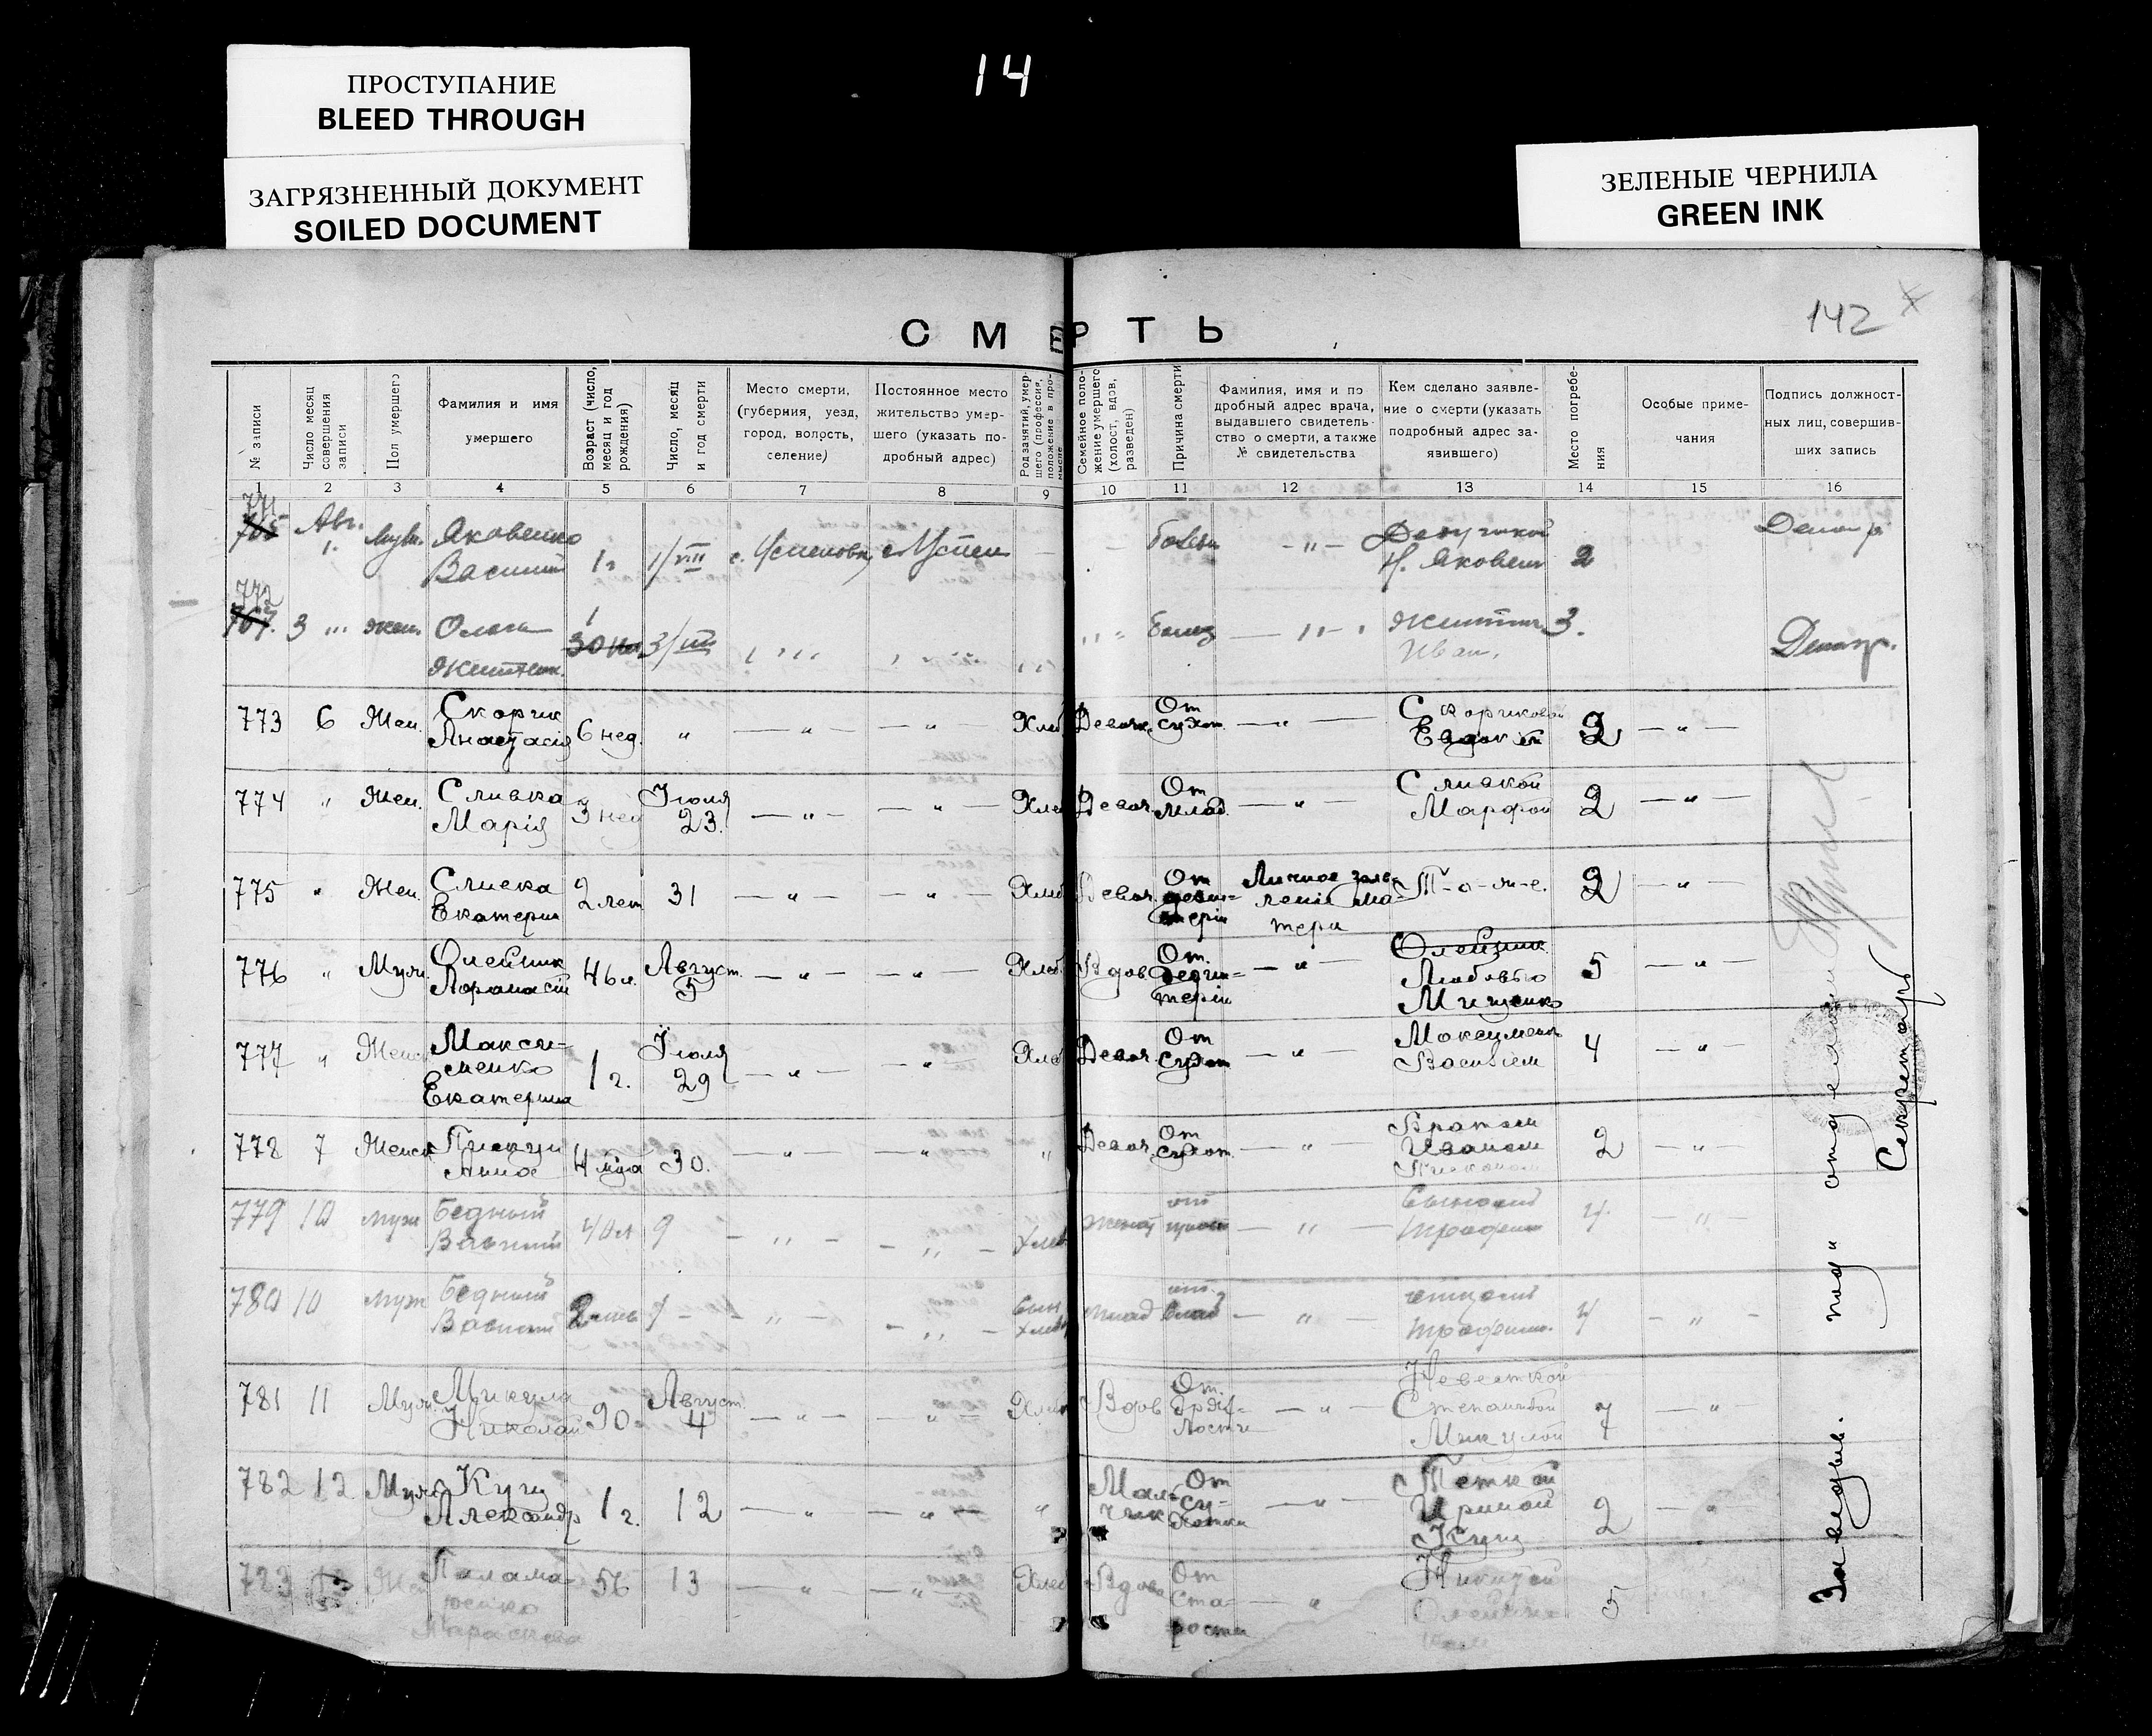 14
ПРОСТУПАНИЕ
BLEED THROUGH
ЗАГРЯЗНЕННЫЙ ДОКУМЕНТ
SOILED DOCUMENT
ЗЕЛЕНЫЕ ЧЕРНИЛА
GREEN INK
142
СМЕРТЬ
№ записи
Число месяц совершения записи
Пол умершего
Фамилия и имя
умершего
Возраст (число, месяц и год рождения)
Число, месяц и год смерти
Место смерти,
(губерния, уезд,
город, волость,
селение)
Постоянное место
жительство умер-
шего (указать по-
дробный адрес)
Род занятий, умер-
шего (профессия,
положение в про-
мысле
Семейное поло-
жение умершего
(холост, вдов,
разведен)
Причина смерти
Фамилия, имя и по
дробный адрес врача,
выдавшего свидетель-
ство о смерти, а также
№ свидетельства
Кем сделано заявле-
ние о смерти (указать
подробный адрес за-
явившего)
Место погребе-
ния
Особые приме-
чания
Подпись должност-
ных лиц, совершив-
ших запись
1 2 3 4 5 6 7 8 9 10 11 12 13 14 15 16
771
Авг. 1. Муж. Яковенко
Василий 1 г 1/VIII с. Успеновк — — — „ — Н. Яковен 2
772
767. 3 „ жен. 1 3/VIII — „ — Иван. 3.
773 6 Жен. Скорик
Анастасія 6 нед. „ — „ — — „ — Хлеб Девочк. От
сухот. — „ — Скориковой 2 — „ —
774 „ Жен. Сливка
Марія 3 нед Іюля
23. — „ — — „ — Хлеб Девоч. От
млад. — „ — Сливкой
Марфой 2 — „ —
775 „ Жен. Сливка
Екатерин 2 лет 31 — „ — — „ — Хлеб Девоч. От
дезин-
теріи Личное заяв-
леніе ма-
тери Т-о-ж-е. 2 — „ —
776 „ Муж. Олейник
Афанасій 46 л. Август.
5 — „ — — „ — Хлеб. Вдов От.
дезин-
теріи — „ — Олейник
Любовью
Мищенко 5 — „ —
777 „ Женск Макси-
менко
Екатерина 1 г. Іюля
29 — „ — — „ — Хлеб Девоч. От
сухот — „ — Максименк
Васильем 4 — „ —
778 7 Женск Пискун
Анна 4 м-ца 30. — „ — — „ — „ Девоч. От
сухот. — „ — Братом
Иваном 2 — „ —
779 10 муж Бедный
Василий 40 л 9 — „ — — „ — Хлеб Женат от — „ — Сыном
Трофим 4 — „ —
780 10 муж Бедный 2 9 — „ — — „ — Сын
Хлеб млад от
слаб — „ — отцом
Трофим. 4 — „ —
781 11 Муж. Микула
Николай 90 Август.
4 — „ — — „ — Хлеб Вдов От.
дрях-
лости — „ — Невесткой
Степанидой
Микулой 7 — „ —
782 12 Муж. Куц
Александр 1 г. 12 — „ — — „ — „ Маль-
чик От
су-
хотки — „ — Теткой
Ириной
Куц 2 — „ —
783 13 Жен Палама-
ренко
Параскева 56 13 — „ — — „ — Хлеб Вдова От
ста-
рости — „ — 5
Заведыв. подъ отделом
Секретарь